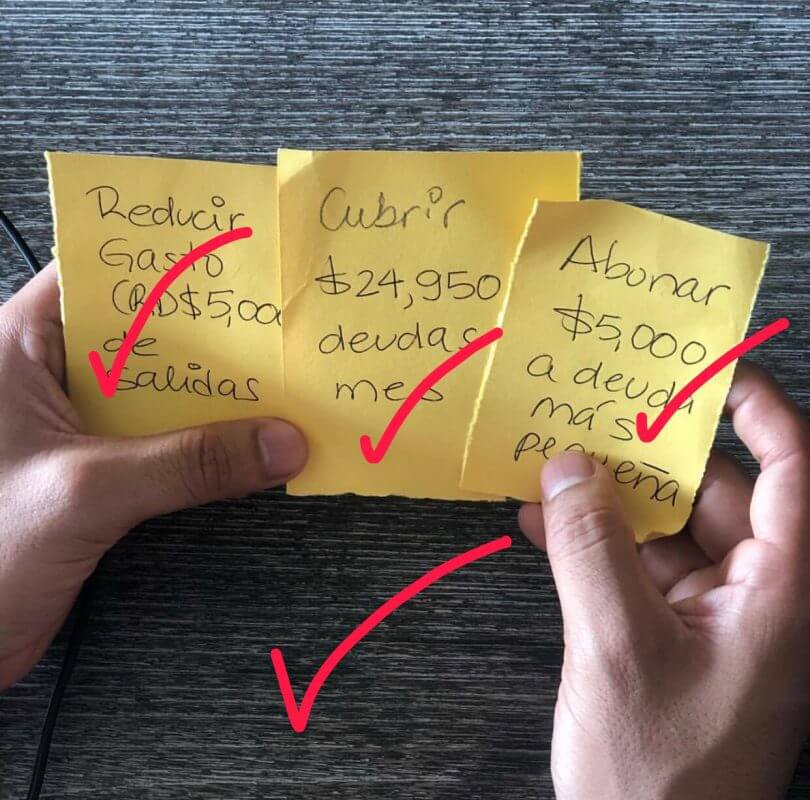 Reducir
Gasto
(RD$5,000
de
Salidas
Cubrir
$24,950
deudas
mes
Abonar
$5,000
a deuda
más
pequeña